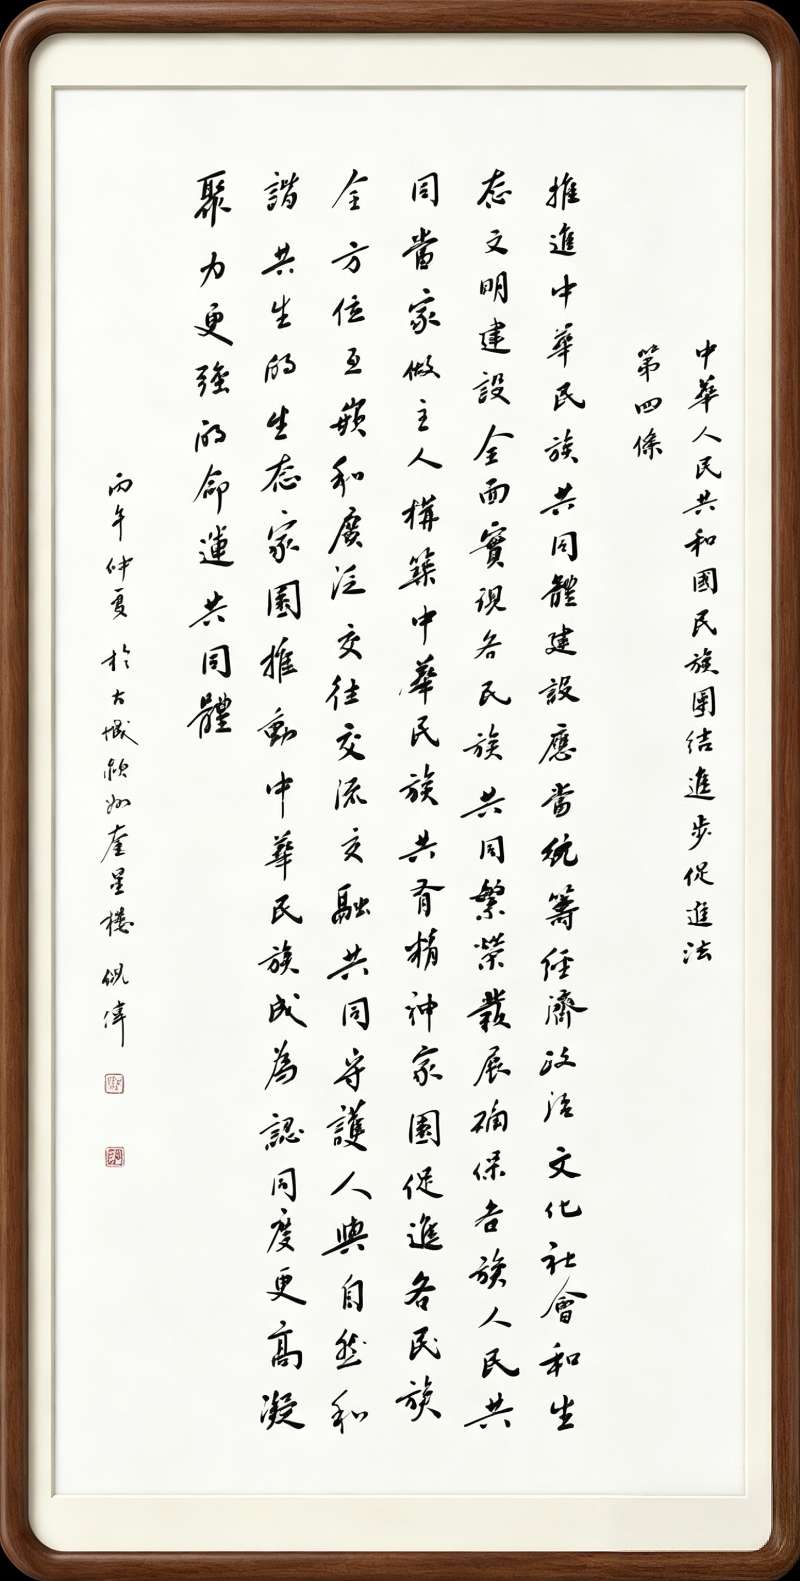 中華人民共和國民族團結進步促進法
第四條
推進中華民族共同體建設應當統籌經濟政治文化社會和生
态文明建設全面實現各民族共同繁榮發展确保各族人民共
同當家做主人構築中華民族共有精神家園促進各民族
全方位互嵌和廣泛交往交流交融共同守護人與自然和
諧共生的生态家園推動中華民族成為認同度更高凝
聚力更強的命運共同體
丙午仲夏 於古城潁州奎星樓 倪偉